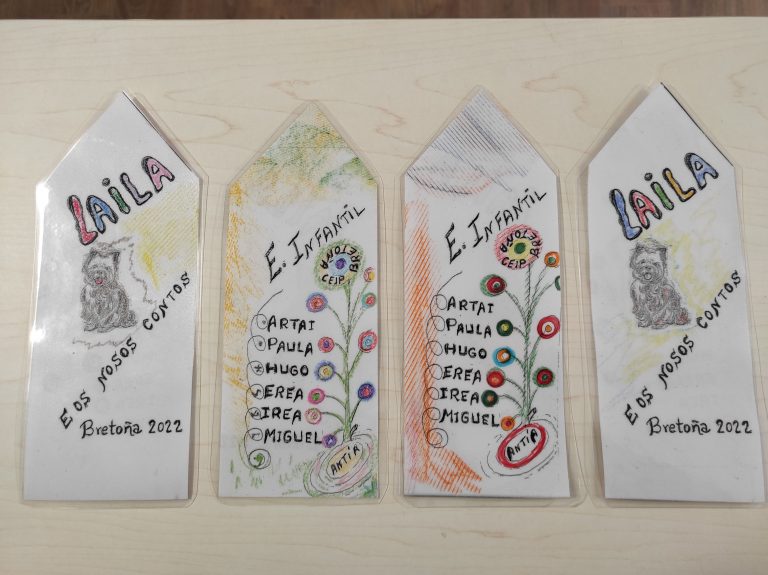 LAILA
E OS NOSOS CONTOS
Bretoña 2022
E. INFANTIL
CEIP BRETOÑA
ARTAI
PAULA
HUGO
EREA
IREA
MIGUEL
ANTÍA
E. INFANTIL
CEIP BRETOÑA
ARTAI
PAULA
HUGO
EREA
IREA
MIGUEL
ANTÍA
LAILA
E OS NOSOS CONTOS
Bretoña 2022